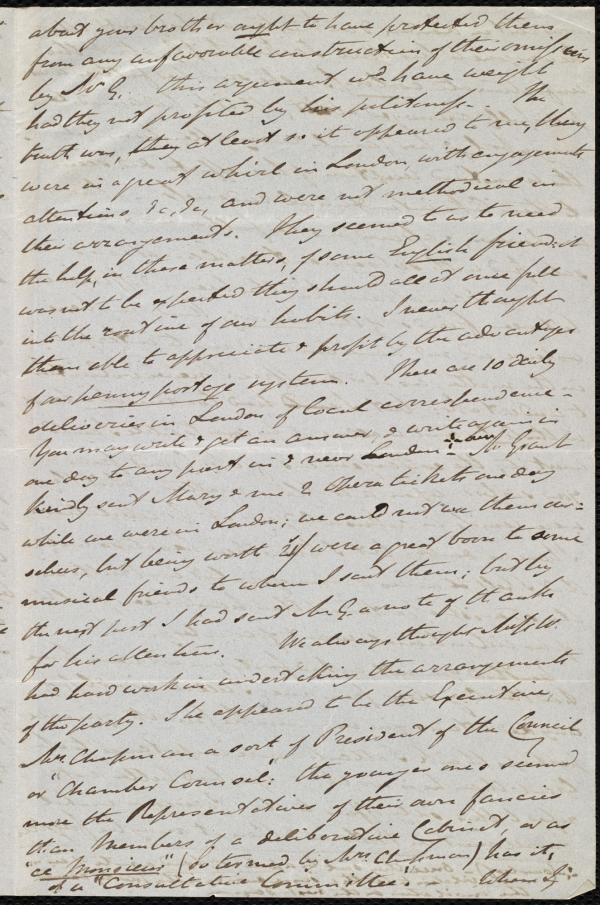 about your brother ought to have protected them
from any unfavorable construction of their omission
by Mr G. this argument wd. have weight
had they not profited by his politeness. The
truth was, they at least so it appeared to me, they
were in a great whirl in London with engagements
attentions, &c, &c, and were not methodical in
their arrangements. They seemed to us to need
the help, in these matters, of some English friend: it
was not to be expected they should all at once fall
into the routine of our habits. I never thought
them able to appreciate & profit by the advantages
of our penny postage system. There are 10 daily
deliveries in London of local correspondence –
You may write & get an answer, & write again in
one day to any part in & near London. Mr Grant
kindly sent Mary & me 2 Opera tickets one day
while we were in London; we could not use them our=
selves, but being worth were a great boon to some
musical friends to whom I sent them; but by
the next post I had sent Mr G. a note of thanks
for his attention. We always thought Miss W.
had hard work in undertaking the arrangements
of the party. She appeared to be the Executive,
Mrs. Chapman a sort of President of the Council
or "Chamber Counsel": the younger ones seemed
more the Representatives of their own fancies
than Members of a deliberative Cabinet, or as
"ce monsieur" (so termed by Mrs Chapman) has it,
of a "Consultative Committee".